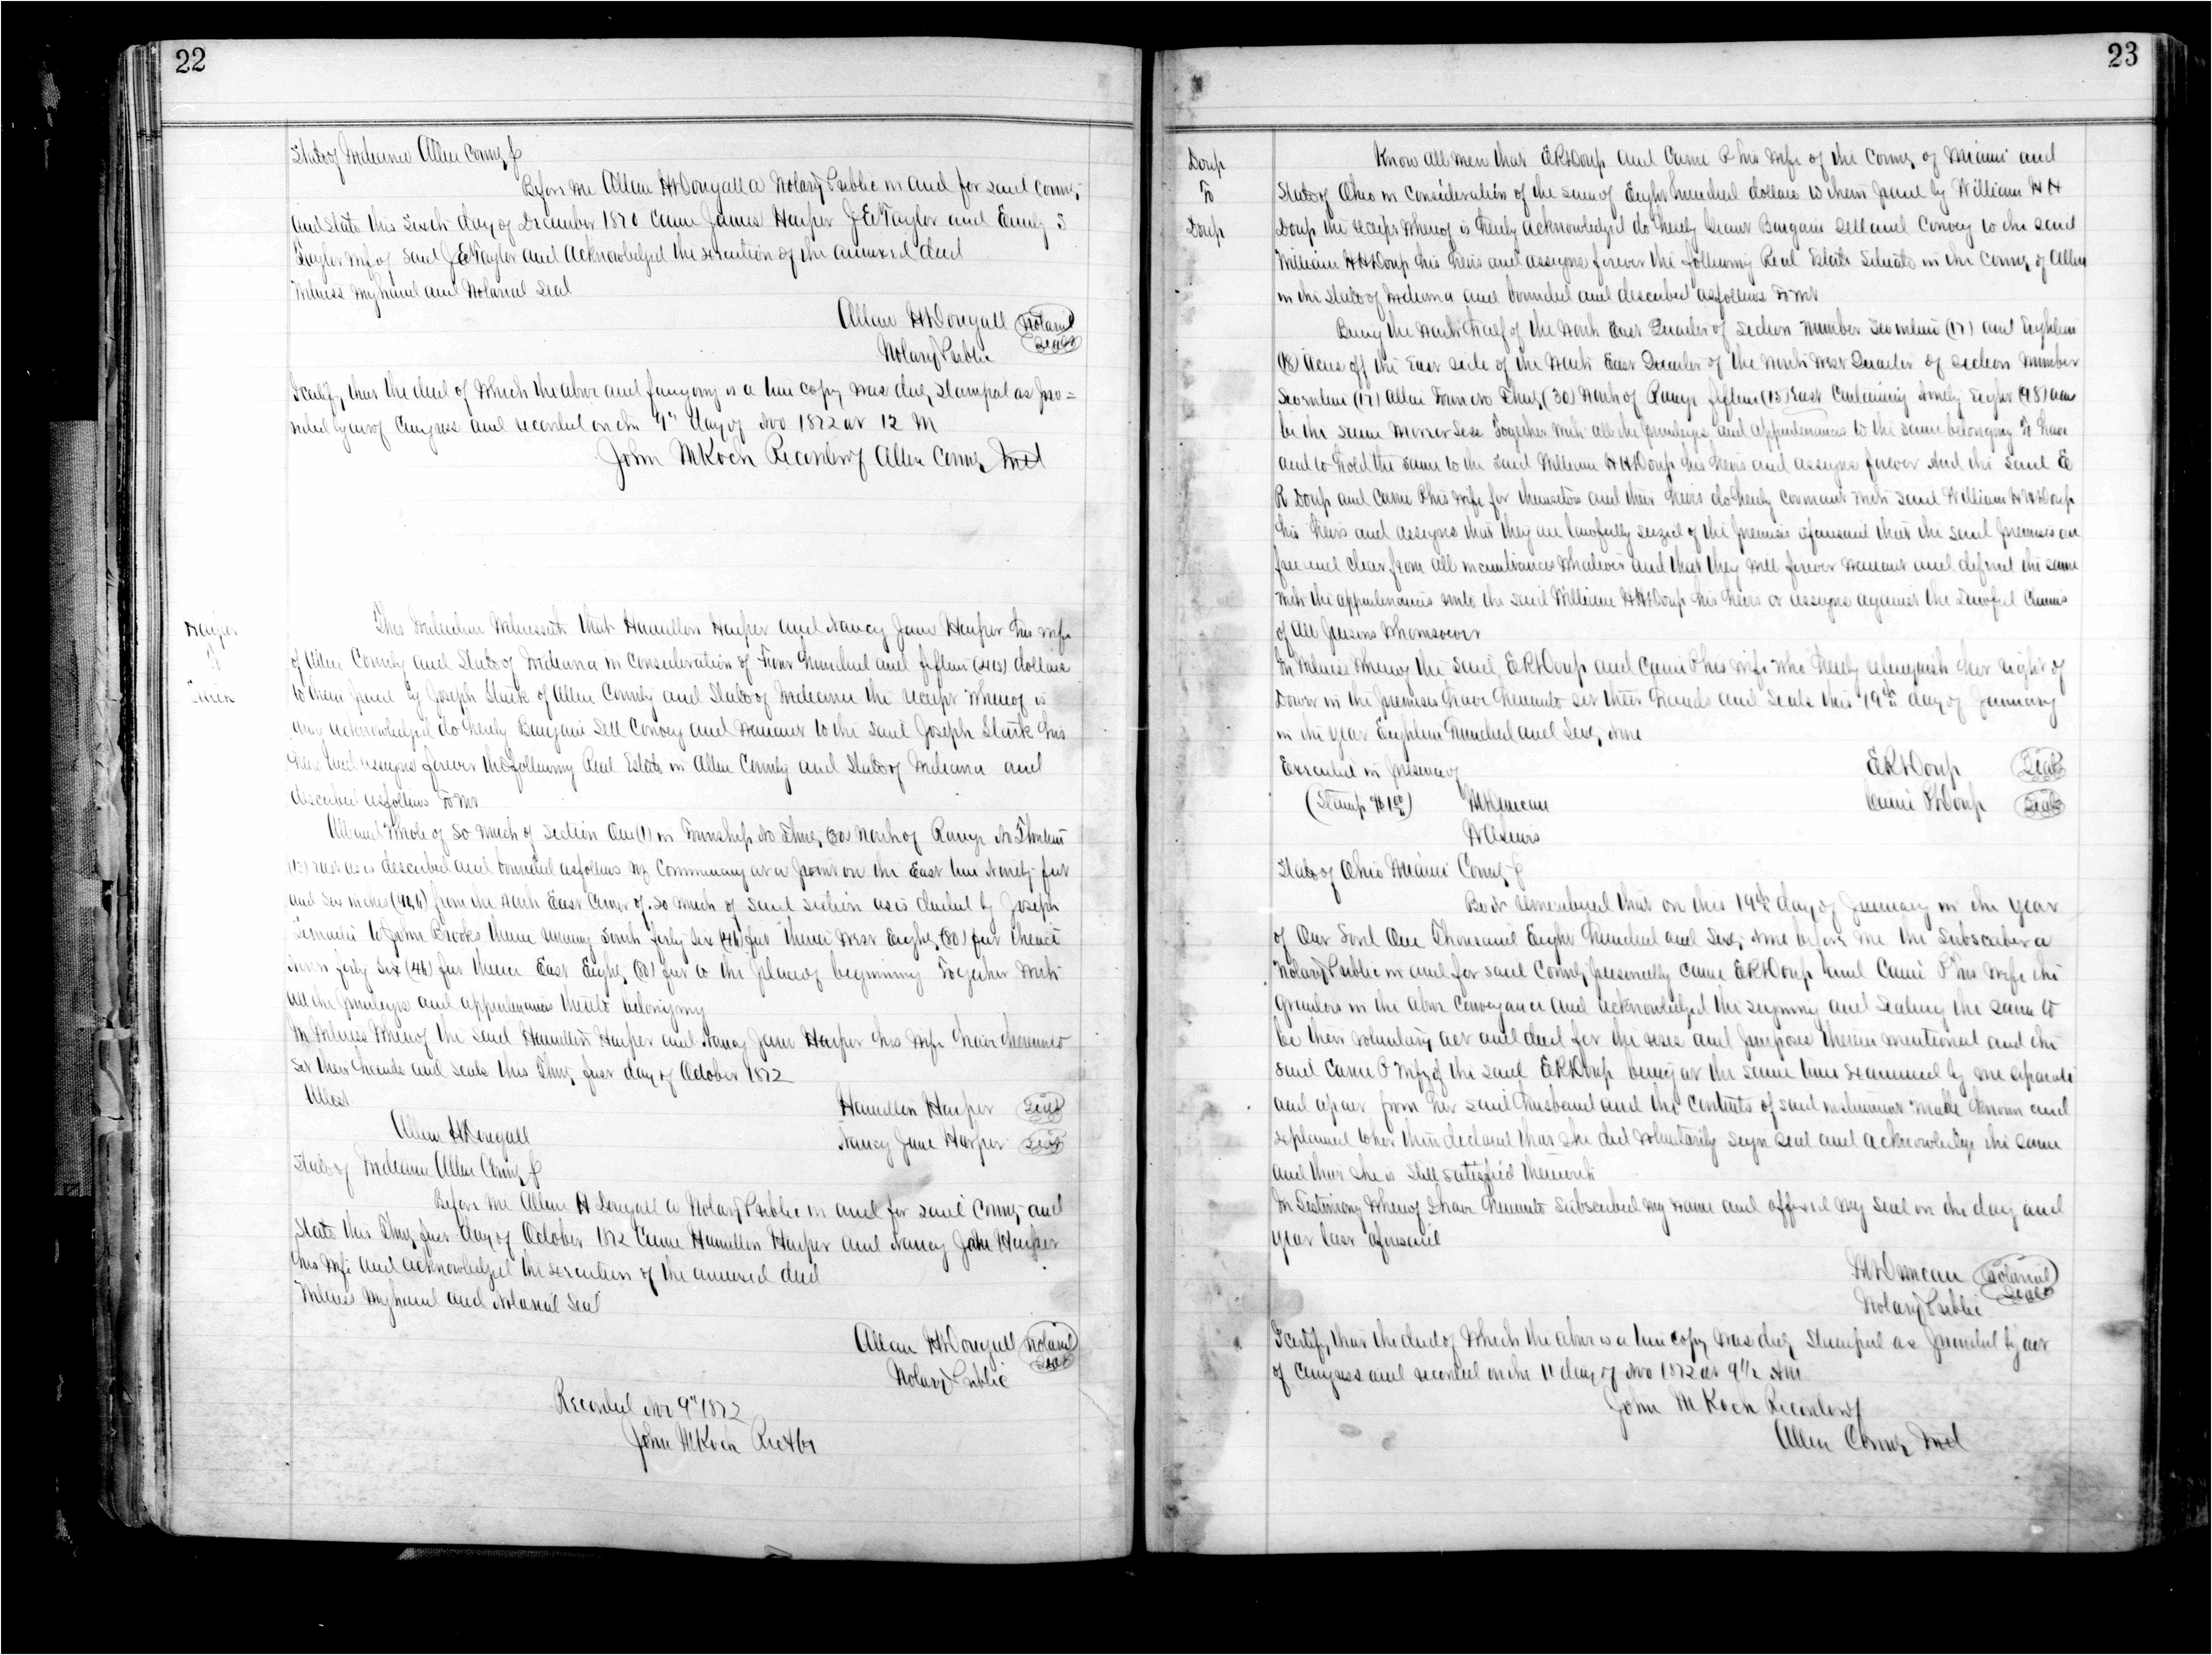 22
State of Indiana Allen County
Before me Allan H Dougall a Notary Public in and for said County
and State this Sixth day of December 1870 came James Harper J E Taylor and Emily S
Taylor wife of said J E Taylor and acknowledged the execution of the annexed deed
Witness my hand and Notarial Seal
Allan H Dougall Notarial
Notary Public Seal
I certify that the deed of which the above and foregoing is a true copy was duly stamped as pro=
vided by act of Congress and recorded on this 9" day of Nov 1872 at 12 M
John M Koch Recorder of Allen County Ind
Harper
To
This Indenture Witnesseth that Hamilton Harper and Nancy Jane Harper his wife
of Allen County and State of Indiana in consideration of Four hundred and fifteen (415) dollars
to them paid by Joseph Stark of Allen County and State of Indiana the receipt whereof is
acknowledged do hereby Bargain Sell Convey and Warrant to the said Joseph Stark his
heirs and assigns forever the following Real Estate in Allen County and State of Indiana and
described as follows To wit
All and Whole of so much of Section One (1) in Township No Thirty (30) North of Range No Thirteen
(13) East as is described and bounded as follows viz Commencing at a point on the East line Ninety feet
and six inches from the North East Corner of so much of said section as is deeded by Joseph
to John Brooks thence running South forty six (46) feet thence West Eighty (80) feet thence
North forty six (46) feet thence East Eighty (80) feet to the place of beginning Together with
all the privileges and appurtenances thereto belonging
In Witness Whereof the said Hamilton Harper and Nancy Jane Harper his wife have hereunto
set their hands and seals this Thirty first day of October 1872
Attest Hamilton Harper Seal
Allan H Dougall Nancy Jane Harper Seal
State of Indiana Allen County
Before me Allan H Dougall a Notary Public in and for said County and
State this Thirty first day of October 1872 came Hamilton Harper and Nancy Jane Harper
his wife and acknowledged the execution of the annexed deed
Witness my hand and Notarial Seal
Allan H Dougall Notarial
Notary Public Seal
Recorded Nov 9" 1872
John M Koch
23
Doup
To
Doup
Know all men that E R Doup and Carrie P his wife of the County of Miami and
State of Ohio in consideration of the sum of Eight hundred dollars to them paid by William H H
Doup the receipt whereof is hereby acknowledged do hereby Grant Bargain Sell and Convey to the said
William H H Doup his heirs and assigns forever the following Real Estate situate in the County of Allen
in the State of Indiana and bounded and described as follows To wit
Being the North half of the North East Quarter of Section Number Seventeen (17) and Eighteen
(18) acres off the East side of the North East Quarter of the North West Quarter of Section Number
Seventeen (17) all in Town No Thirty (30) North of Range fifteen (15) East Containing Ninety Eight (98) acres
be the same more or less Together with all the privileges and appurtenances to the same belonging To have
and to hold the same to the said William H H Doup his heirs and assigns forever And the said E
R Doup and Carrie P his wife for themselves and their heirs do hereby covenant with said William H H Doup
his heirs and assigns that they are lawfully seized of the premises aforesaid that the said premises are
free and clear from all incumbrances whatever and that they will forever warrant and defend the same
with the appurtenances unto the said William H H Doup his heirs or assigns against the lawful claims
of all persons whomsoever
In Witness Whereof the said E R Doup and Carrie P his wife who hereby relinquish her right of
Dower in the premises have hereunto set their hands and seals this 19th day of January
in the year Eighteen hundred and Sixty Nine
Executed in presence of E R Doup Seal
(Stamp $1 00) M Duncan Carrie P Doup Seal
State of Ohio Miami County
Be it remembered that on this 19th day of January in the year
of Our Lord One Thousand Eight hundred and Sixty Nine before me the subscriber a
Notary Public in and for said County personally came E R Doup and Carrie P his wife the
grantors in the above conveyance and acknowledged the signing and sealing the same to
be their voluntary act and deed for the uses and purposes therein mentioned and the
said Carrie P wife of the said E R Doup being at the same time examined by me separate
and apart from her said husband and the contents of said instrument made known and
explained to her then declared that she did voluntarily sign seal and acknowledge the same
and that she is still satisfied therewith
In Testimony Whereof I have hereunto subscribed my name and affixed my seal on the day and
year last aforesaid
M Duncan Notarial
Notary Public Seal
I certify that the deed of which the above is a true copy was duly stamped as provided by act
of Congress and recorded on the 11 day of Nov 1872 at 9 1/2 AM
John M Koch Recorder of
Allen County Ind